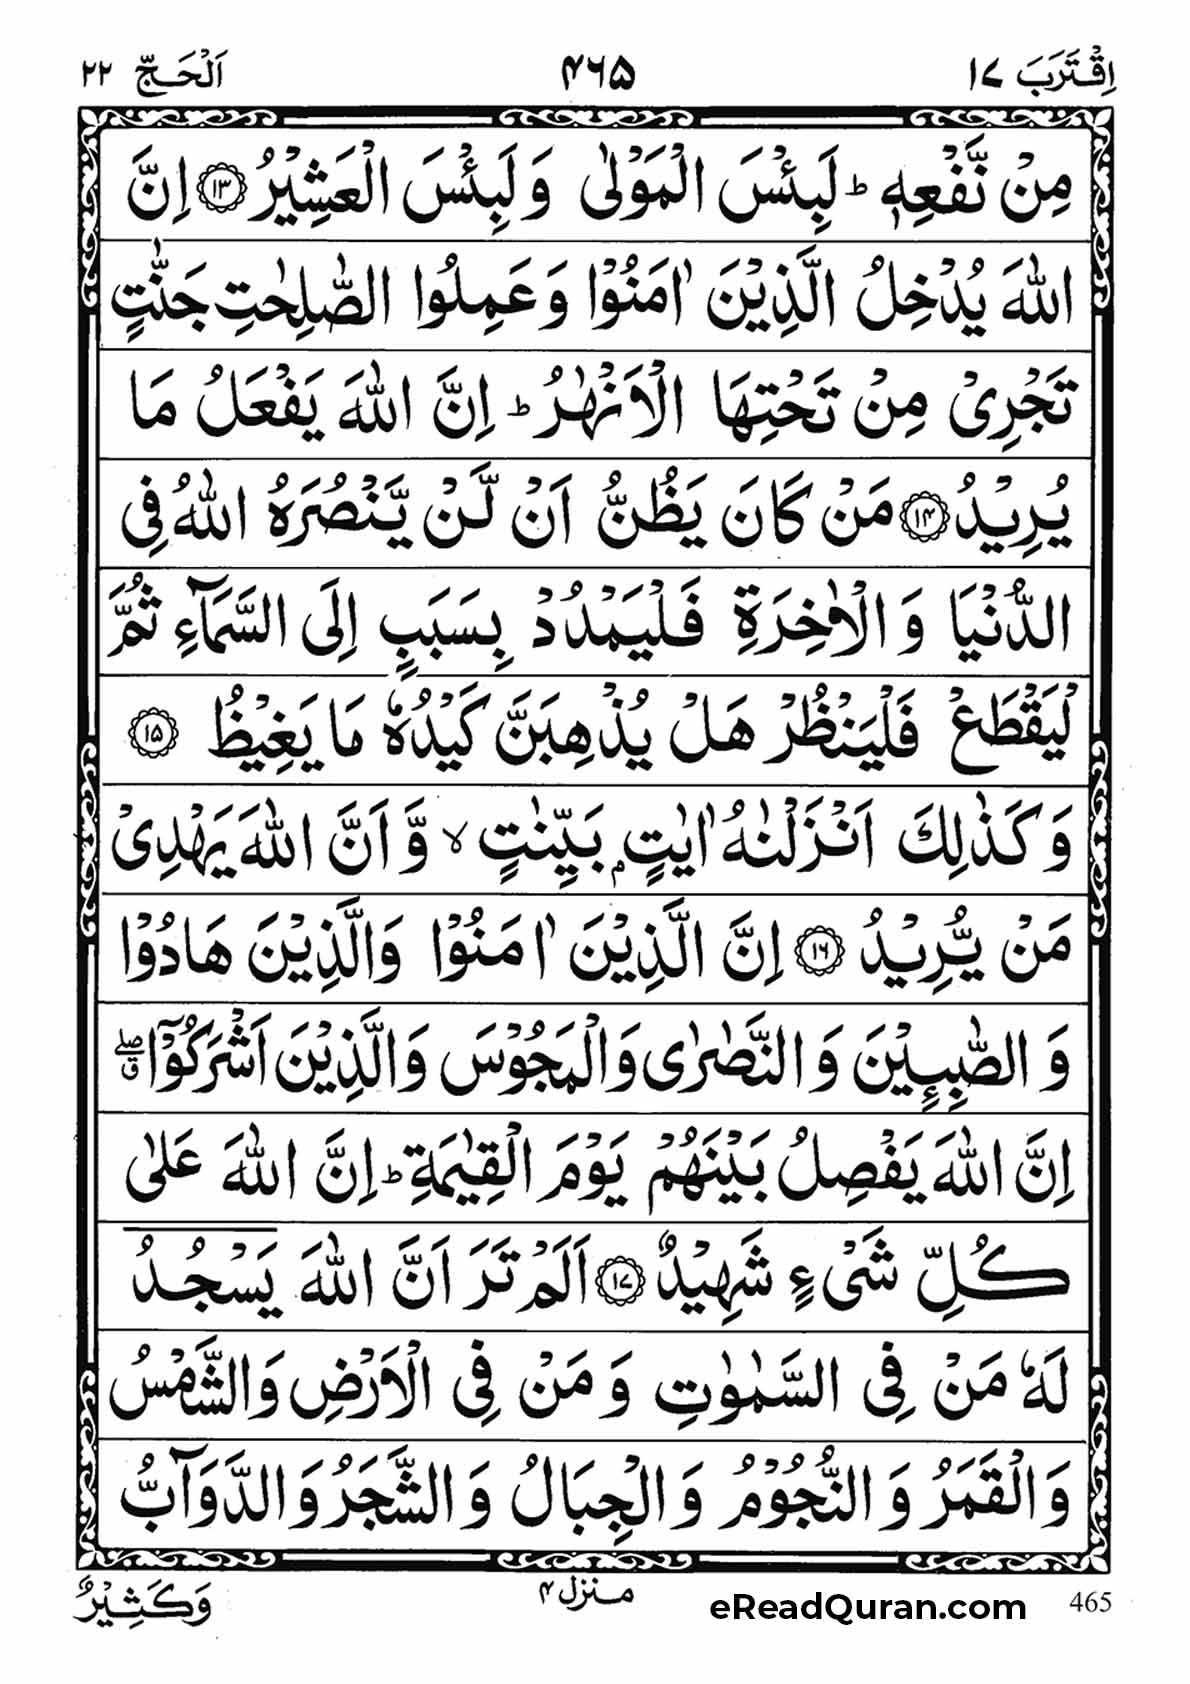 اِقْتَرَبَ ١٧
٤٦٥
اَلْحَجّ ٢٢
مِنْ نَّفْعِهٖ ؕ لَبِئْسَ الْمَوْلٰى وَ لَبِئْسَ الْعَشِيْرُ ﴿١٣﴾ اِنَّ
اللّٰهَ يُدْخِلُ الَّذِيْنَ اٰمَنُوْا وَ عَمِلُوا الصّٰلِحٰتِ جَنّٰتٍ
تَجْرِيْ مِنْ تَحْتِهَا الْاَنْهٰرُ ؕ اِنَّ اللّٰهَ يَفْعَلُ مَا
يُرِيْدُ ﴿١٤﴾ مَنْ كَانَ يَظُنُّ اَنْ لَّنْ يَّنْصُرَهُ اللّٰهُ فِى
الدُّنْيَا وَ الْاٰخِرَةِ فَلْيَمْدُدْ بِسَبَبٍ اِلَى السَّمَآءِ ثُمَّ
لْيَقْطَعْ فَلْيَنْظُرْ هَلْ يُذْهِبَنَّ كَيْدُهٗ مَا يَغِيْظُ ﴿١٥﴾
وَ كَذٰلِكَ اَنْزَلْنٰهُ اٰيٰتٍۭ بَيِّنٰتٍ ۙ وَّ اَنَّ اللّٰهَ يَهْدِيْ
مَنْ يُّرِيْدُ ﴿١٦﴾ اِنَّ الَّذِيْنَ اٰمَنُوْا وَالَّذِيْنَ هَادُوْا
وَ الصّٰبِـِٕيْنَ وَ النَّصٰرٰى وَالْمَجُوْسَ وَالَّذِيْنَ اَشْرَكُوْۤا ۖۗ
اِنَّ اللّٰهَ يَفْصِلُ بَيْنَهُمْ يَوْمَ الْقِيٰمَةِ ؕ اِنَّ اللّٰهَ عَلٰى
كُلِّ شَيْءٍ شَهِيْدٌ ﴿١٧﴾ اَلَمْ تَرَ اَنَّ اللّٰهَ يَسْجُدُ
لَهٗ مَنْ فِى السَّمٰوٰتِ وَ مَنْ فِى الْاَرْضِ وَالشَّمْسُ
وَ الْقَمَرُ وَ النُّجُوْمُ وَ الْجِبَالُ وَ الشَّجَرُ وَ الدَّوَآبُّ
وَكَثِيْرٌ
منزل ٤
eReadQuran.com
465